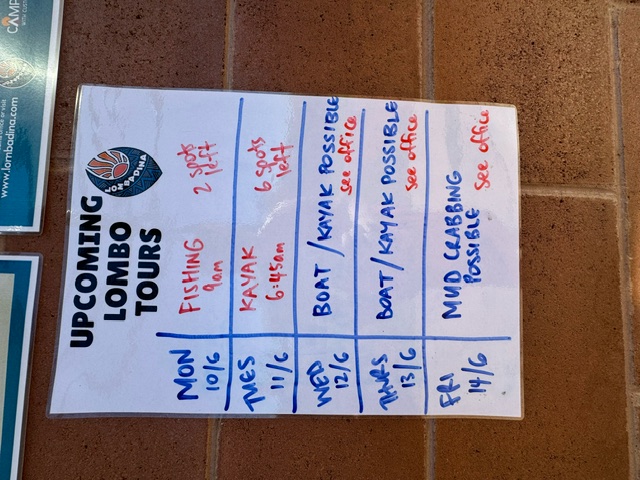 UPCOMING
LOMBO
TOURS
LOMBADINA
MON
10/6
FISHING
9am
2 spots
left
TUES
11/6
KAYAK
6:45am
6 spots
left
WED
12/6
BOAT/KAYAK POSSIBLE
see office
THURS
13/6
BOAT/KAYAK POSSIBLE
see office
FRI
14/6
MUD CRABBING
POSSIBLE
see office
www.lombadina.com